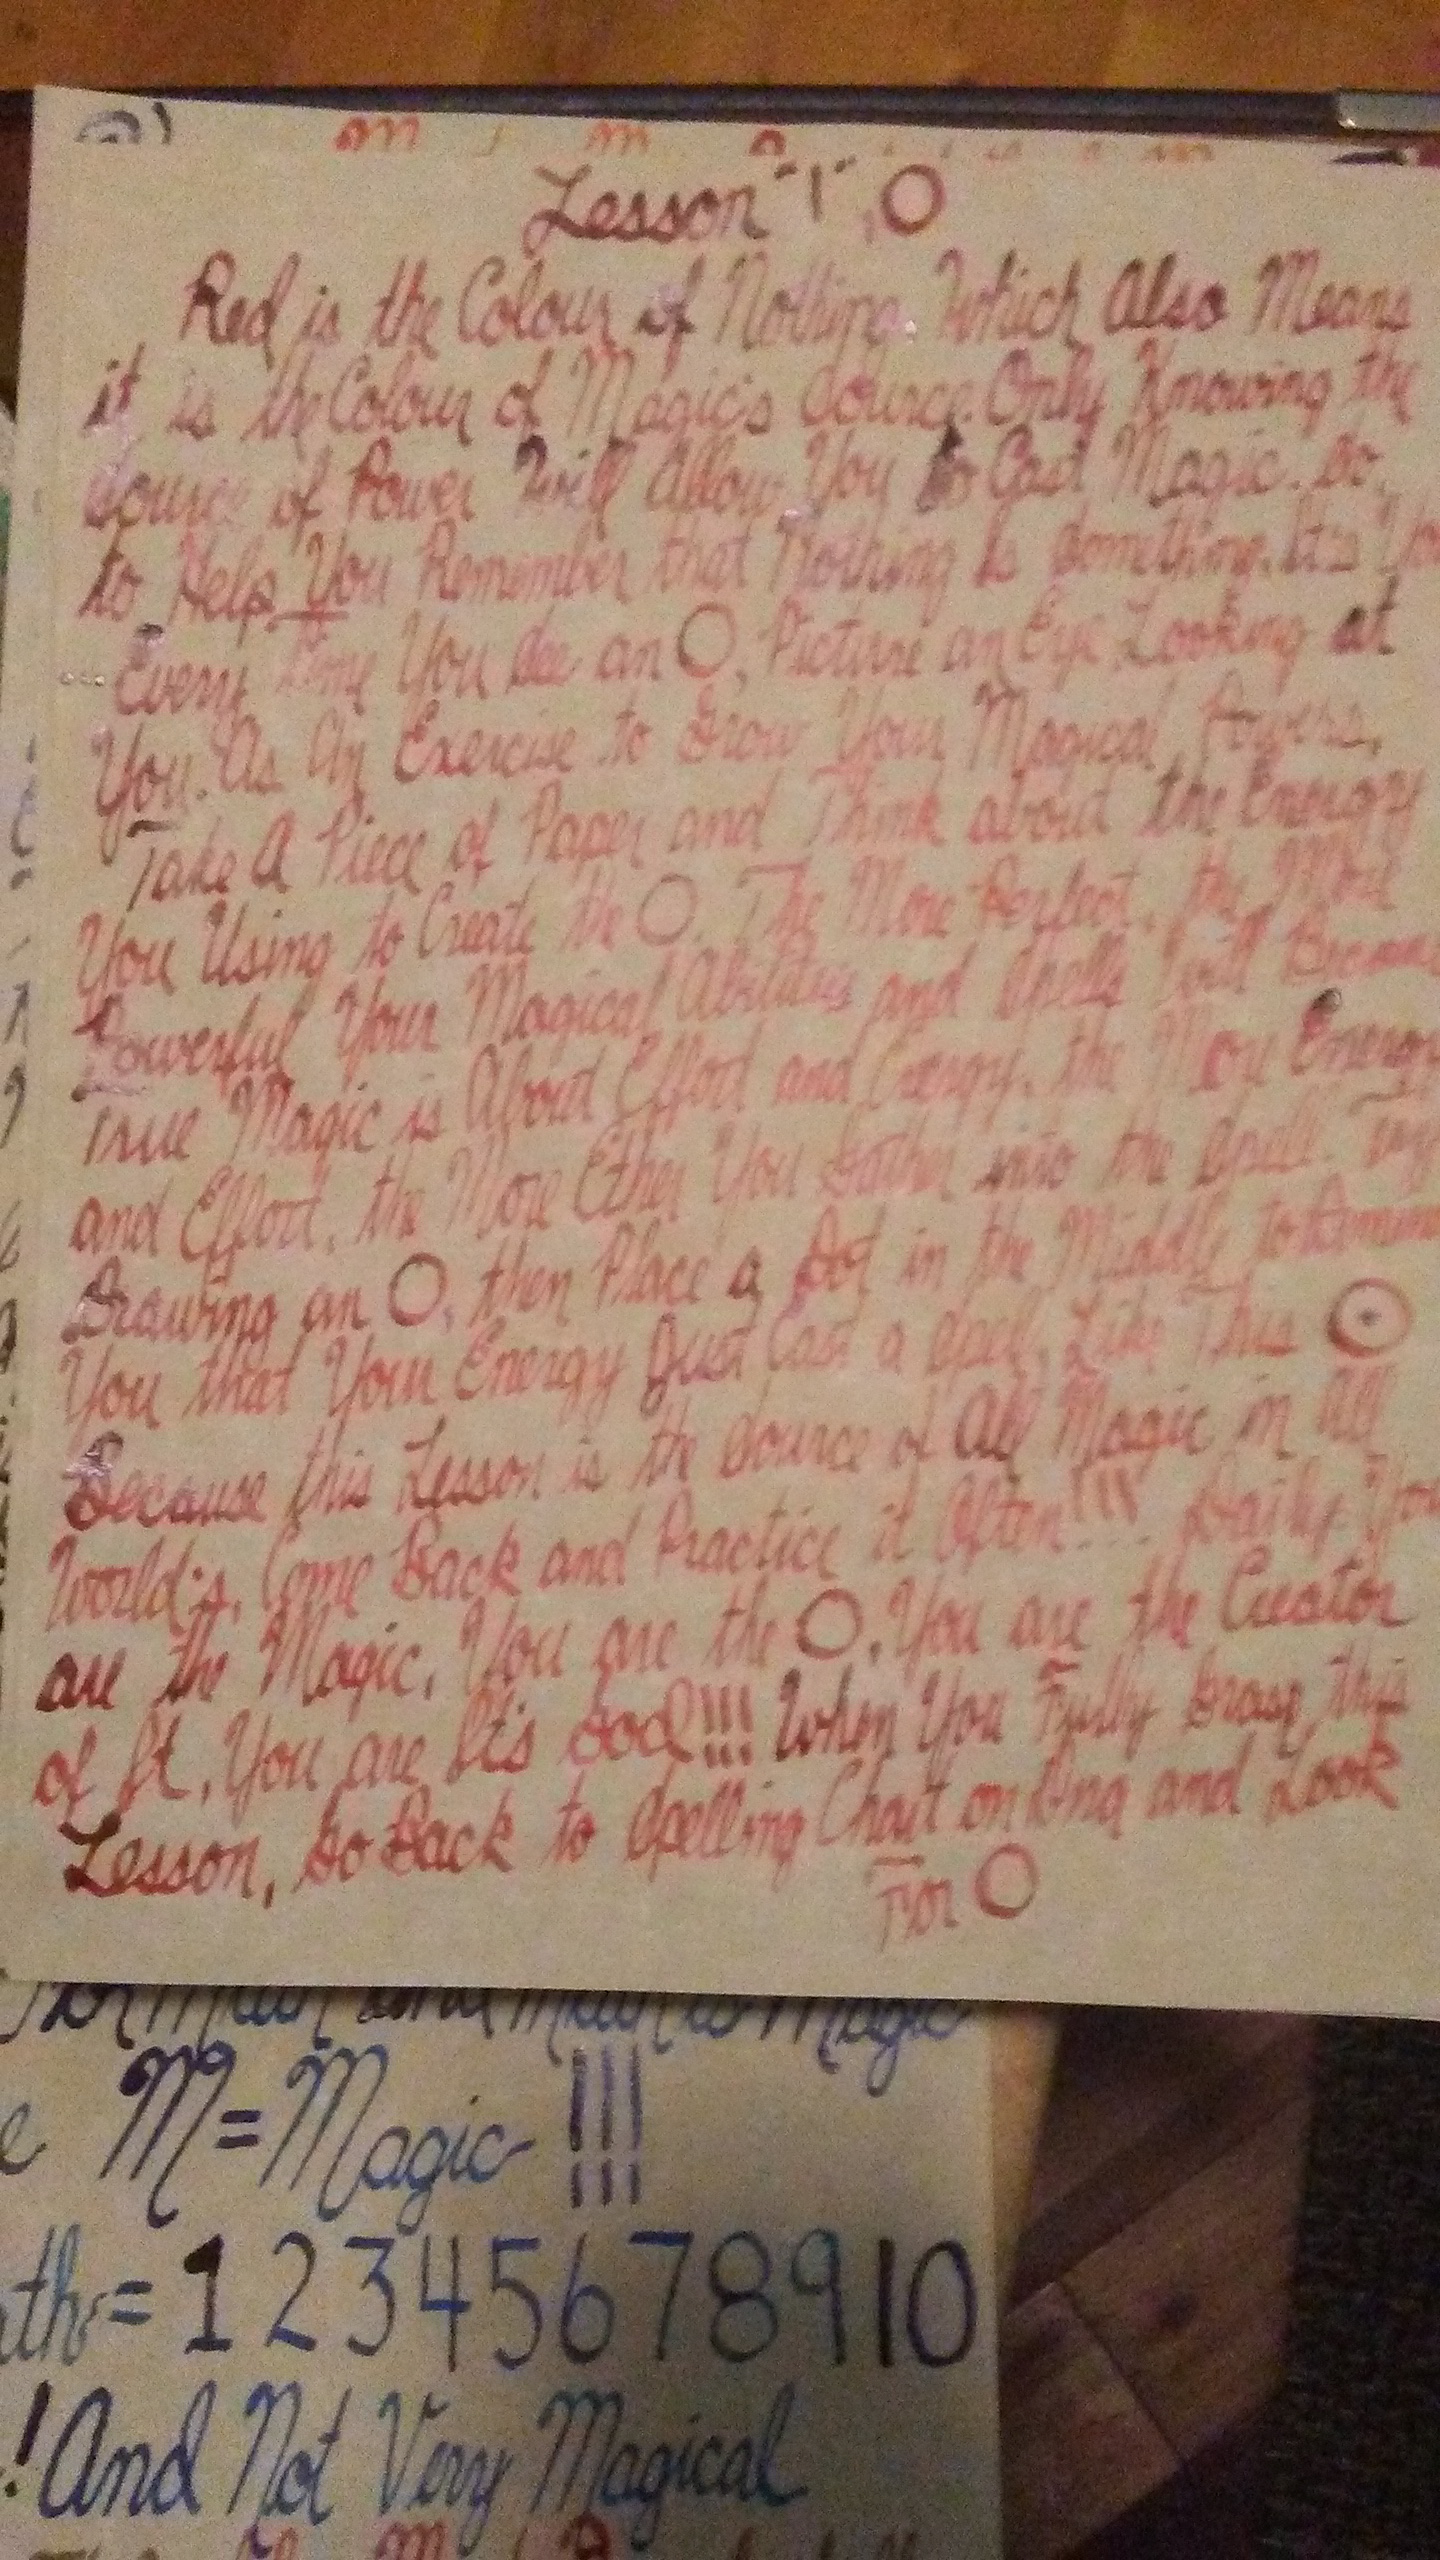 Lesson "1", O
Red is the Colour of Nothing. Which Also Means
it is the Colour of Magic's Source. Only Knowing the
Source of Power Will Allow You to Cast Magic. So
to Help You Remember that Nothing Is Something. It's
Every Time You See an O, Picture an Eye Looking at
You. As An Exercise to Grow Your Magical Powers,
Take A Piece of Paper and Think about the Energy
You Using to Create the O. The More Perfect, the More
Powerful Your Magical Abilities and Spells Will Become
True Magic is About Effort and Energy, the More Energy
and Effort, the More Ether You Gather into the Spell. Try
Drawing an O, then Place a Dot in the Middle to
You that Your Energy Just Cast a Spell, Like This ⊙
Because this Lesson is the Source of All Magic in All
World's, Come Back and Practice it Often!!!... Daily. You
are the Magic, You are the O, You are the Creator
of It, You are It's God!!! When You Fully Grasp this
Lesson, Go Back to Spelling Chart on and Look
For O
and is Magic
M=Magic !!!
= 1 2 3 4 5 6 7 8 9 10
! And Not Very Magical